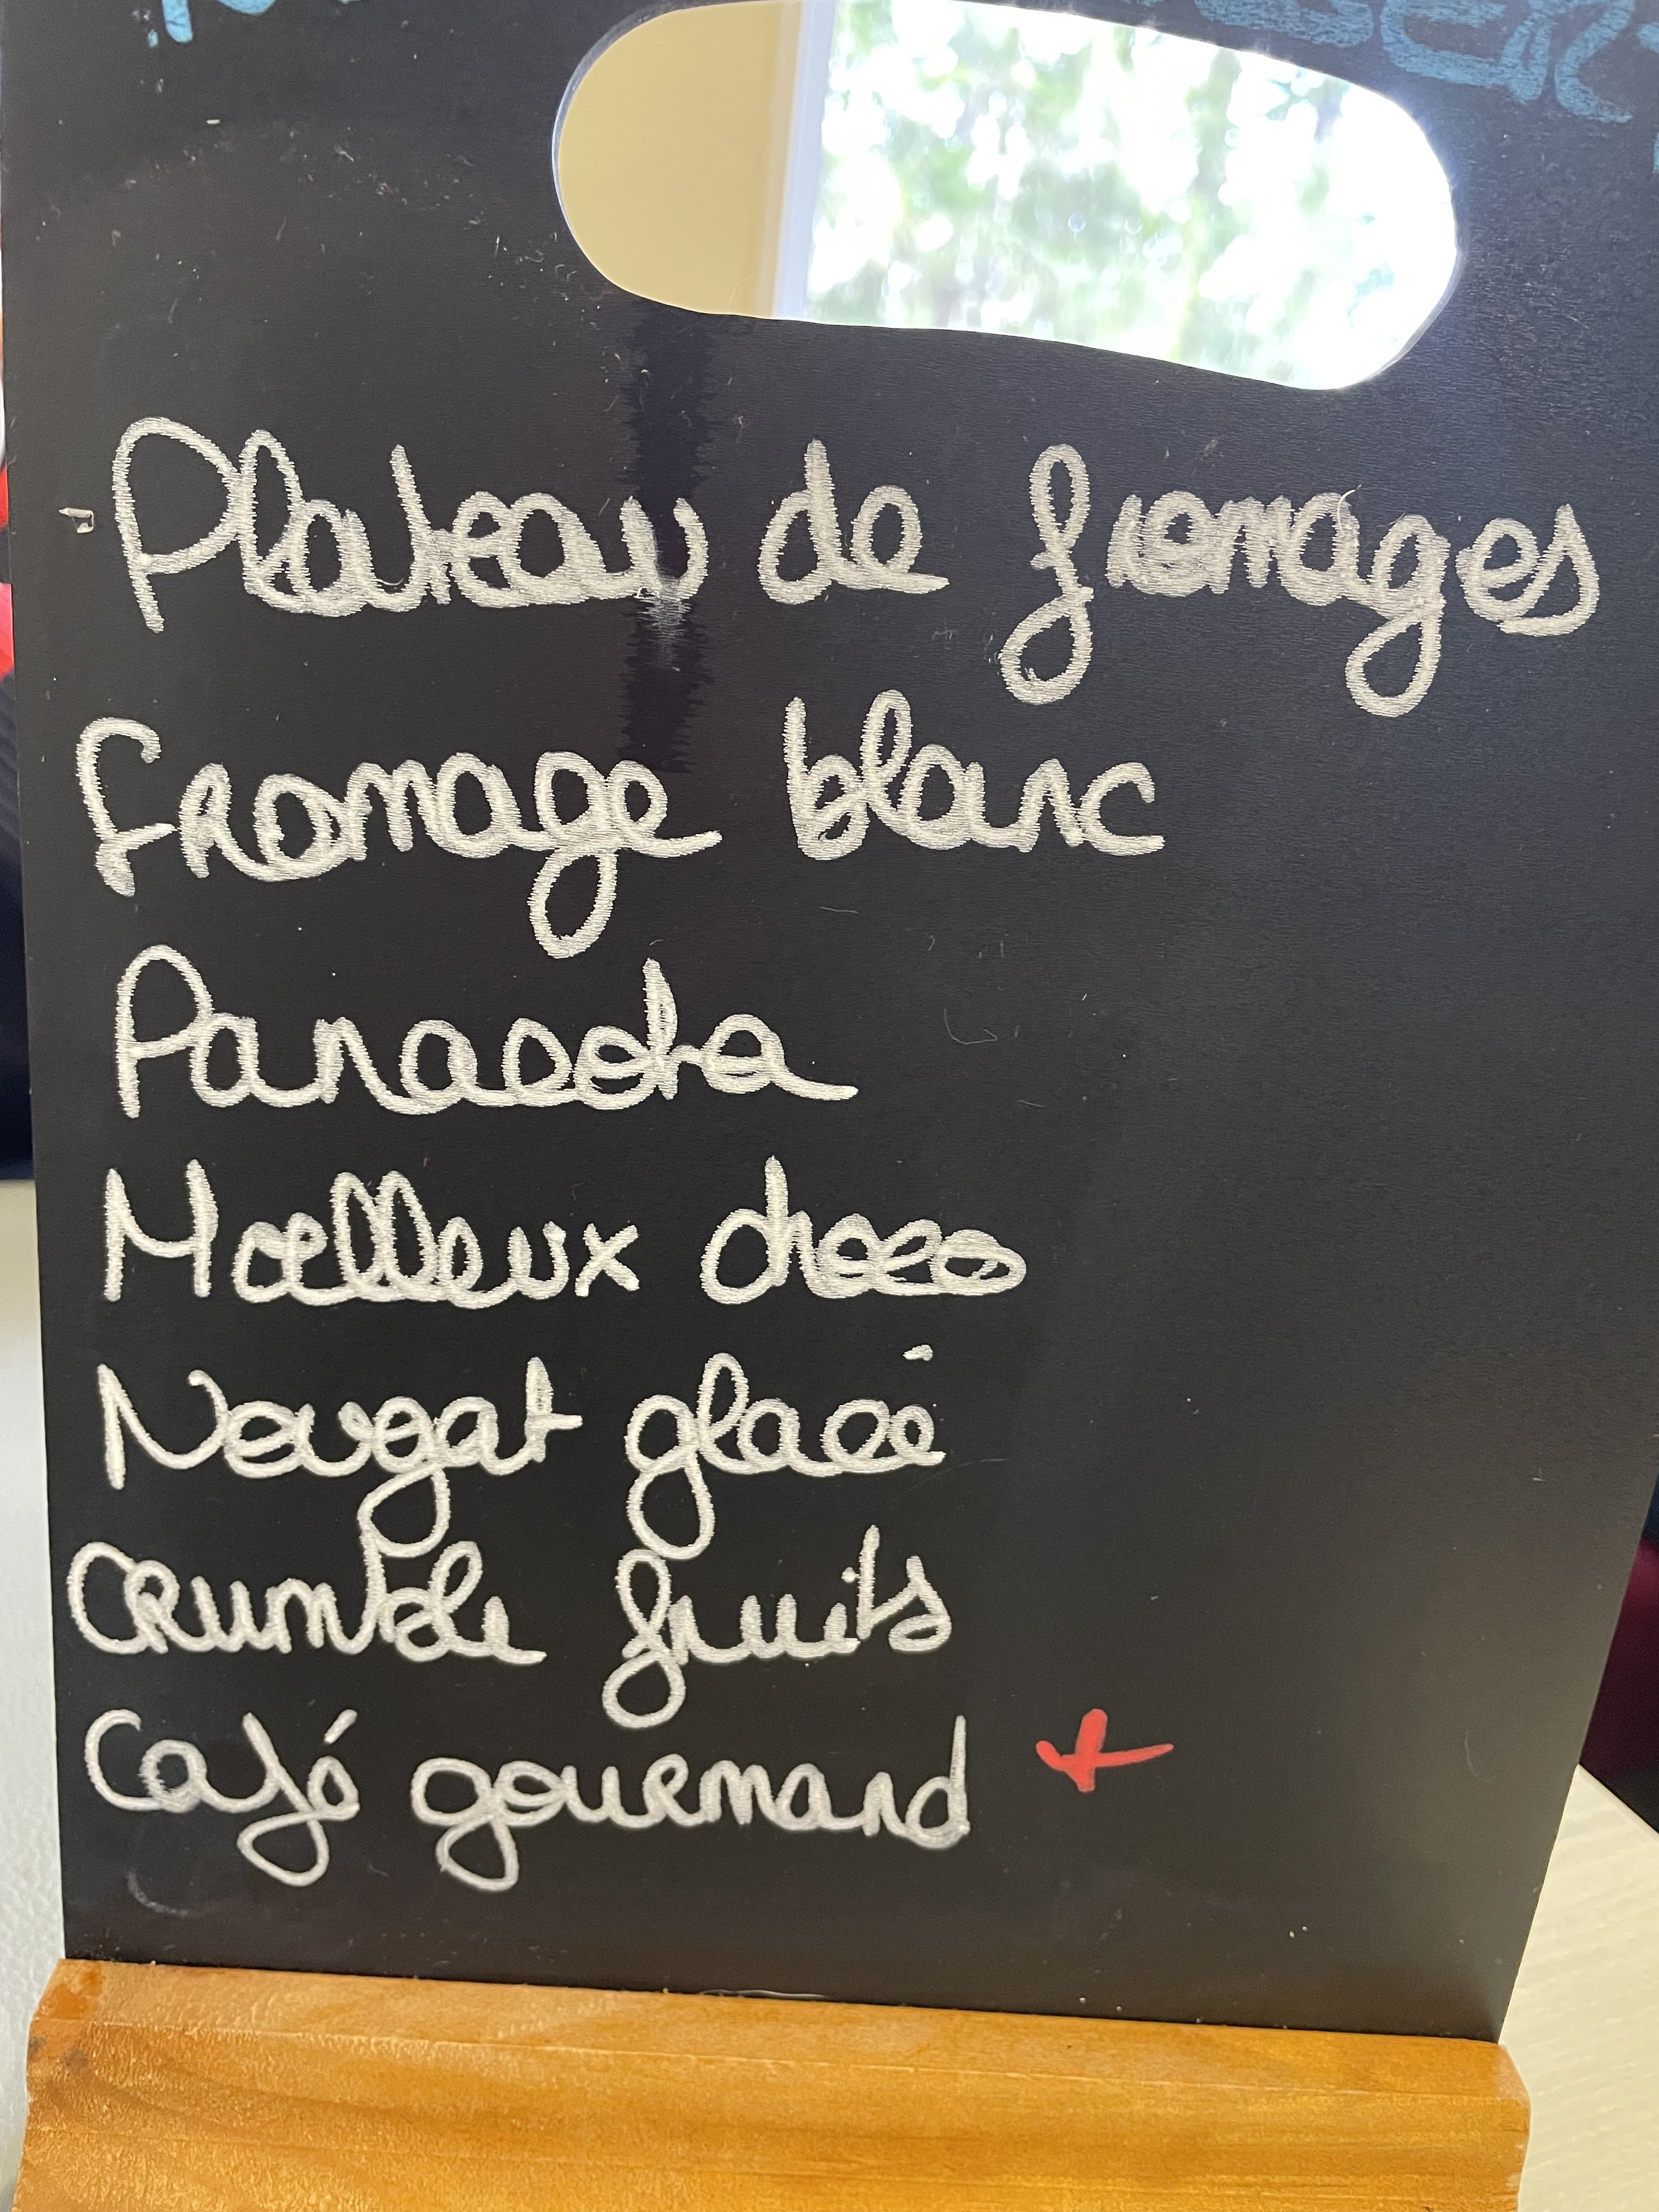 Plateau de fromages
Fromage blanc
Panacota
Moelleux choco
Nougat glacé
Crumble fruits
Café gourmand +